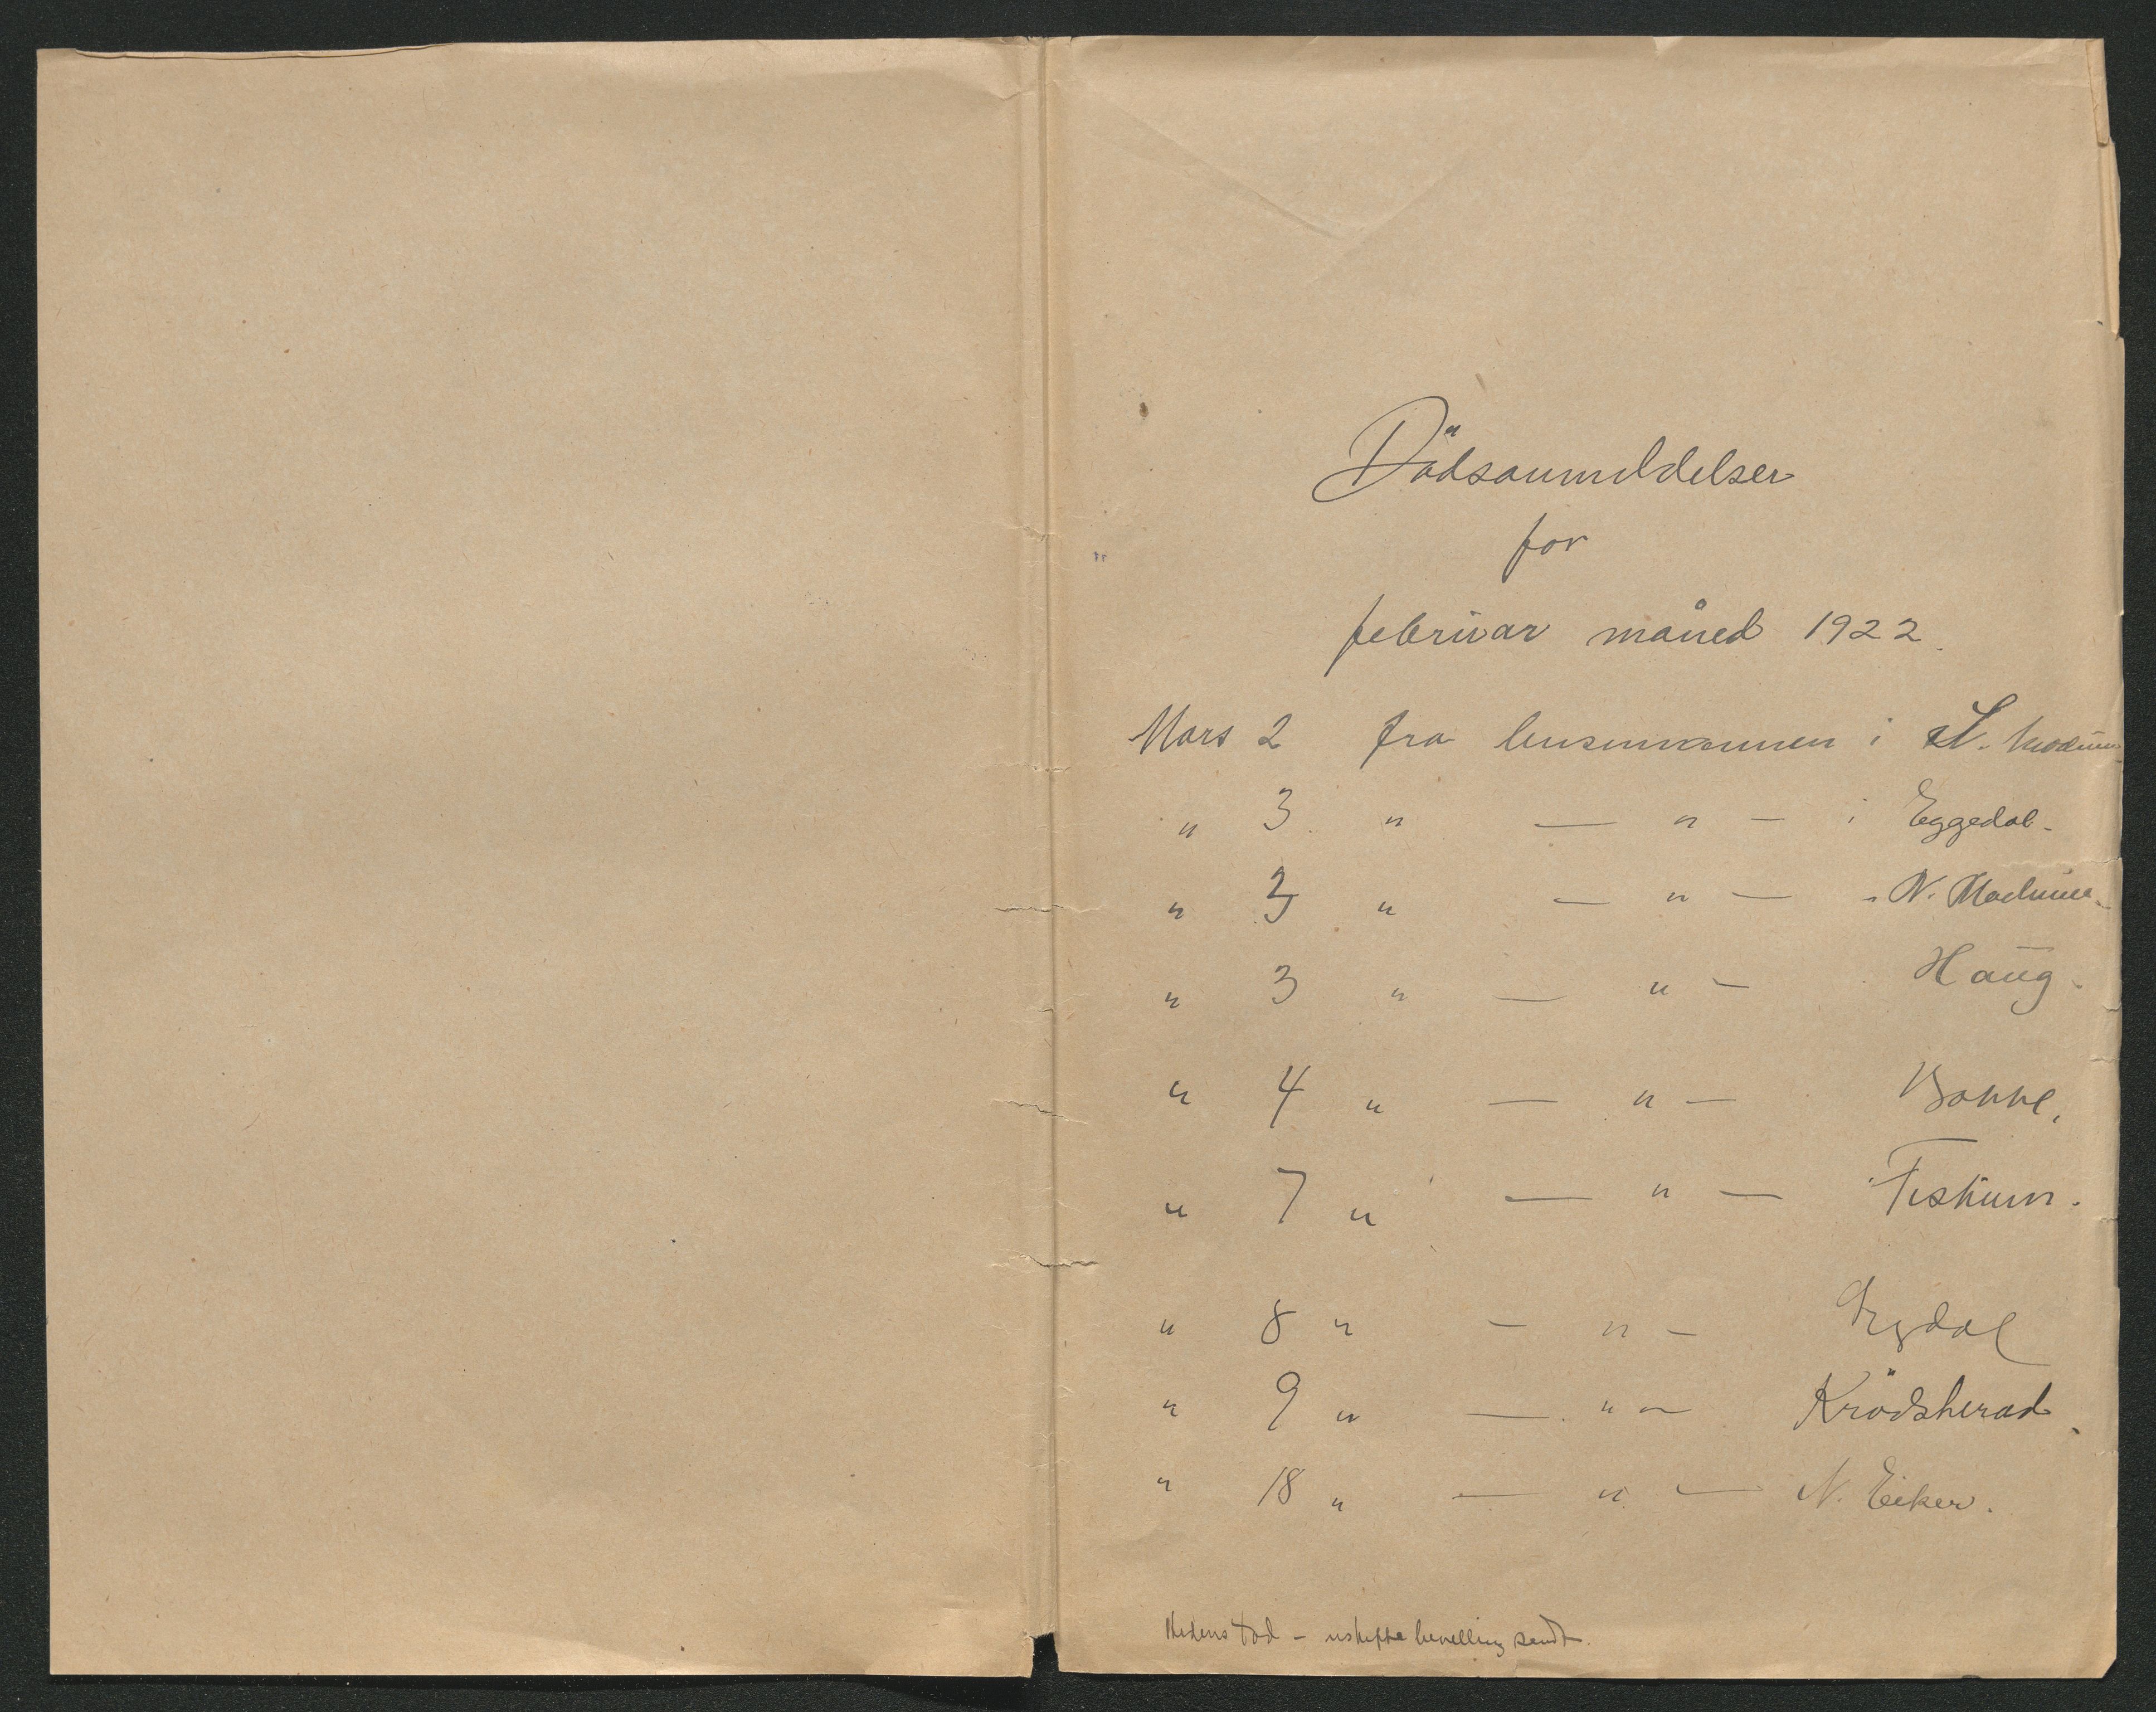 Dödsanmeldelser
for
februar måned 1922.
Mars 2 fra lensmannen i S. Modum
" 3 " — " — i Eggedal.
" 3 " — " — " N. Modum.
" 3 " — " — Haug.
" 4 " — " —
" 7 " — " — Fiskum.
" 8 " — " — Sigdal
" 9 " — " — Krödsherad.
" 18 " — " — N. Eiker.
Hedenstad – uskiftebevilling sendt.